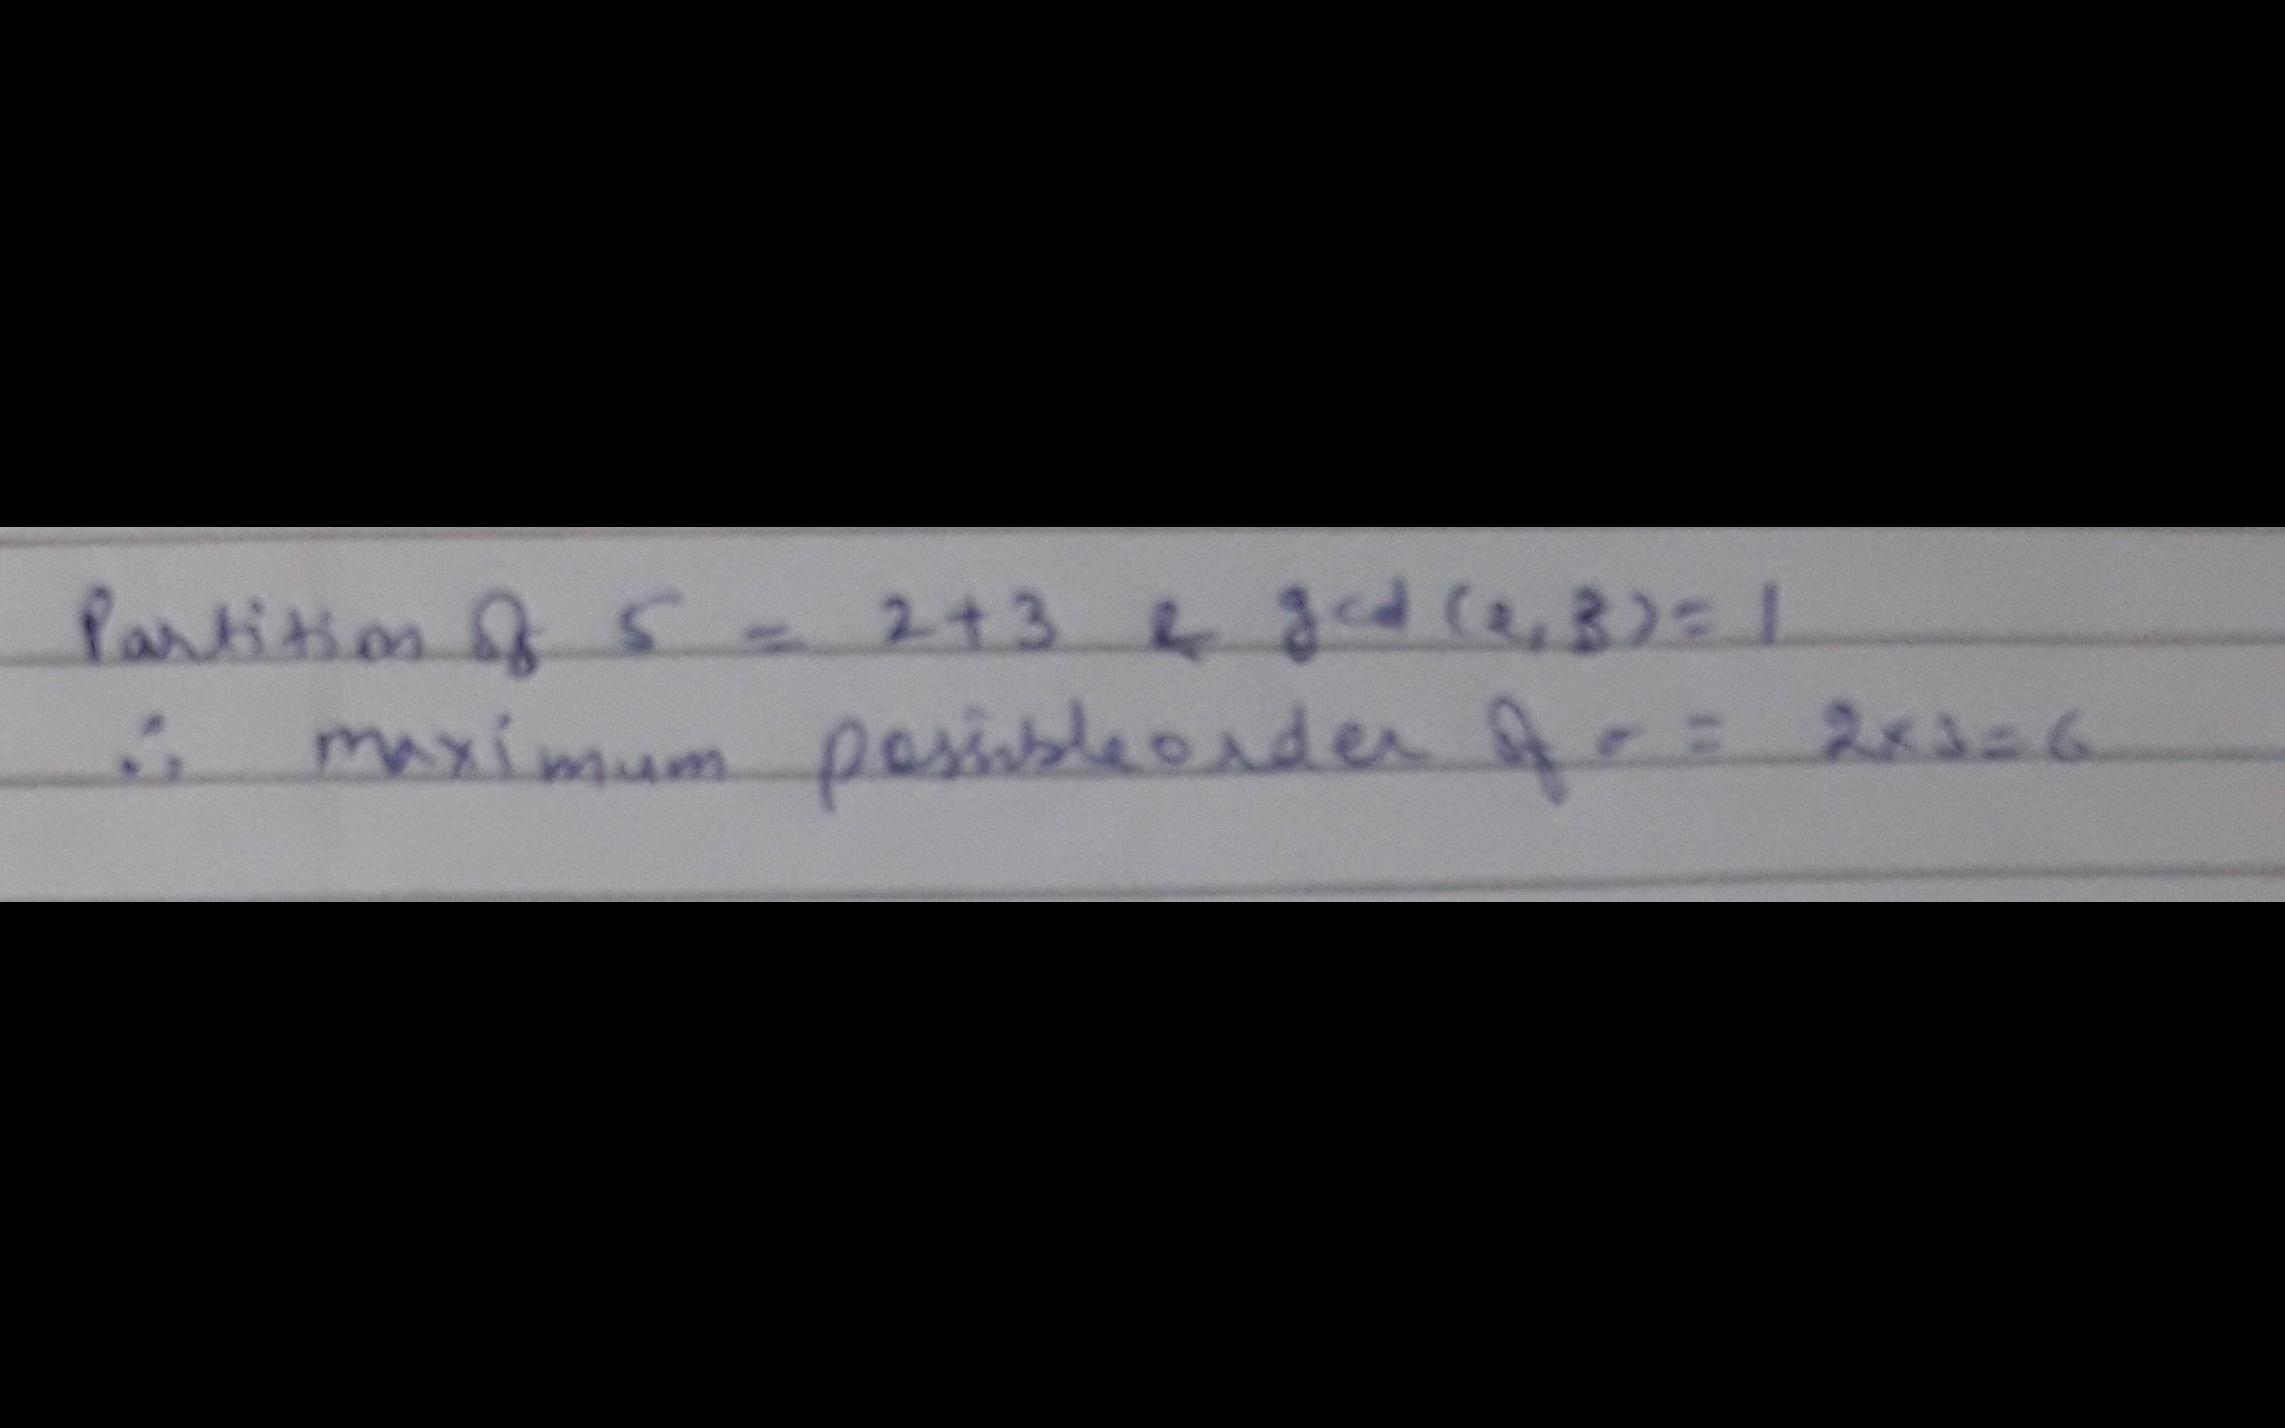 Partition of 5 = 2+3 & gcd (2,3) = 1
∴ maximum possible order of σ = 2×3=6